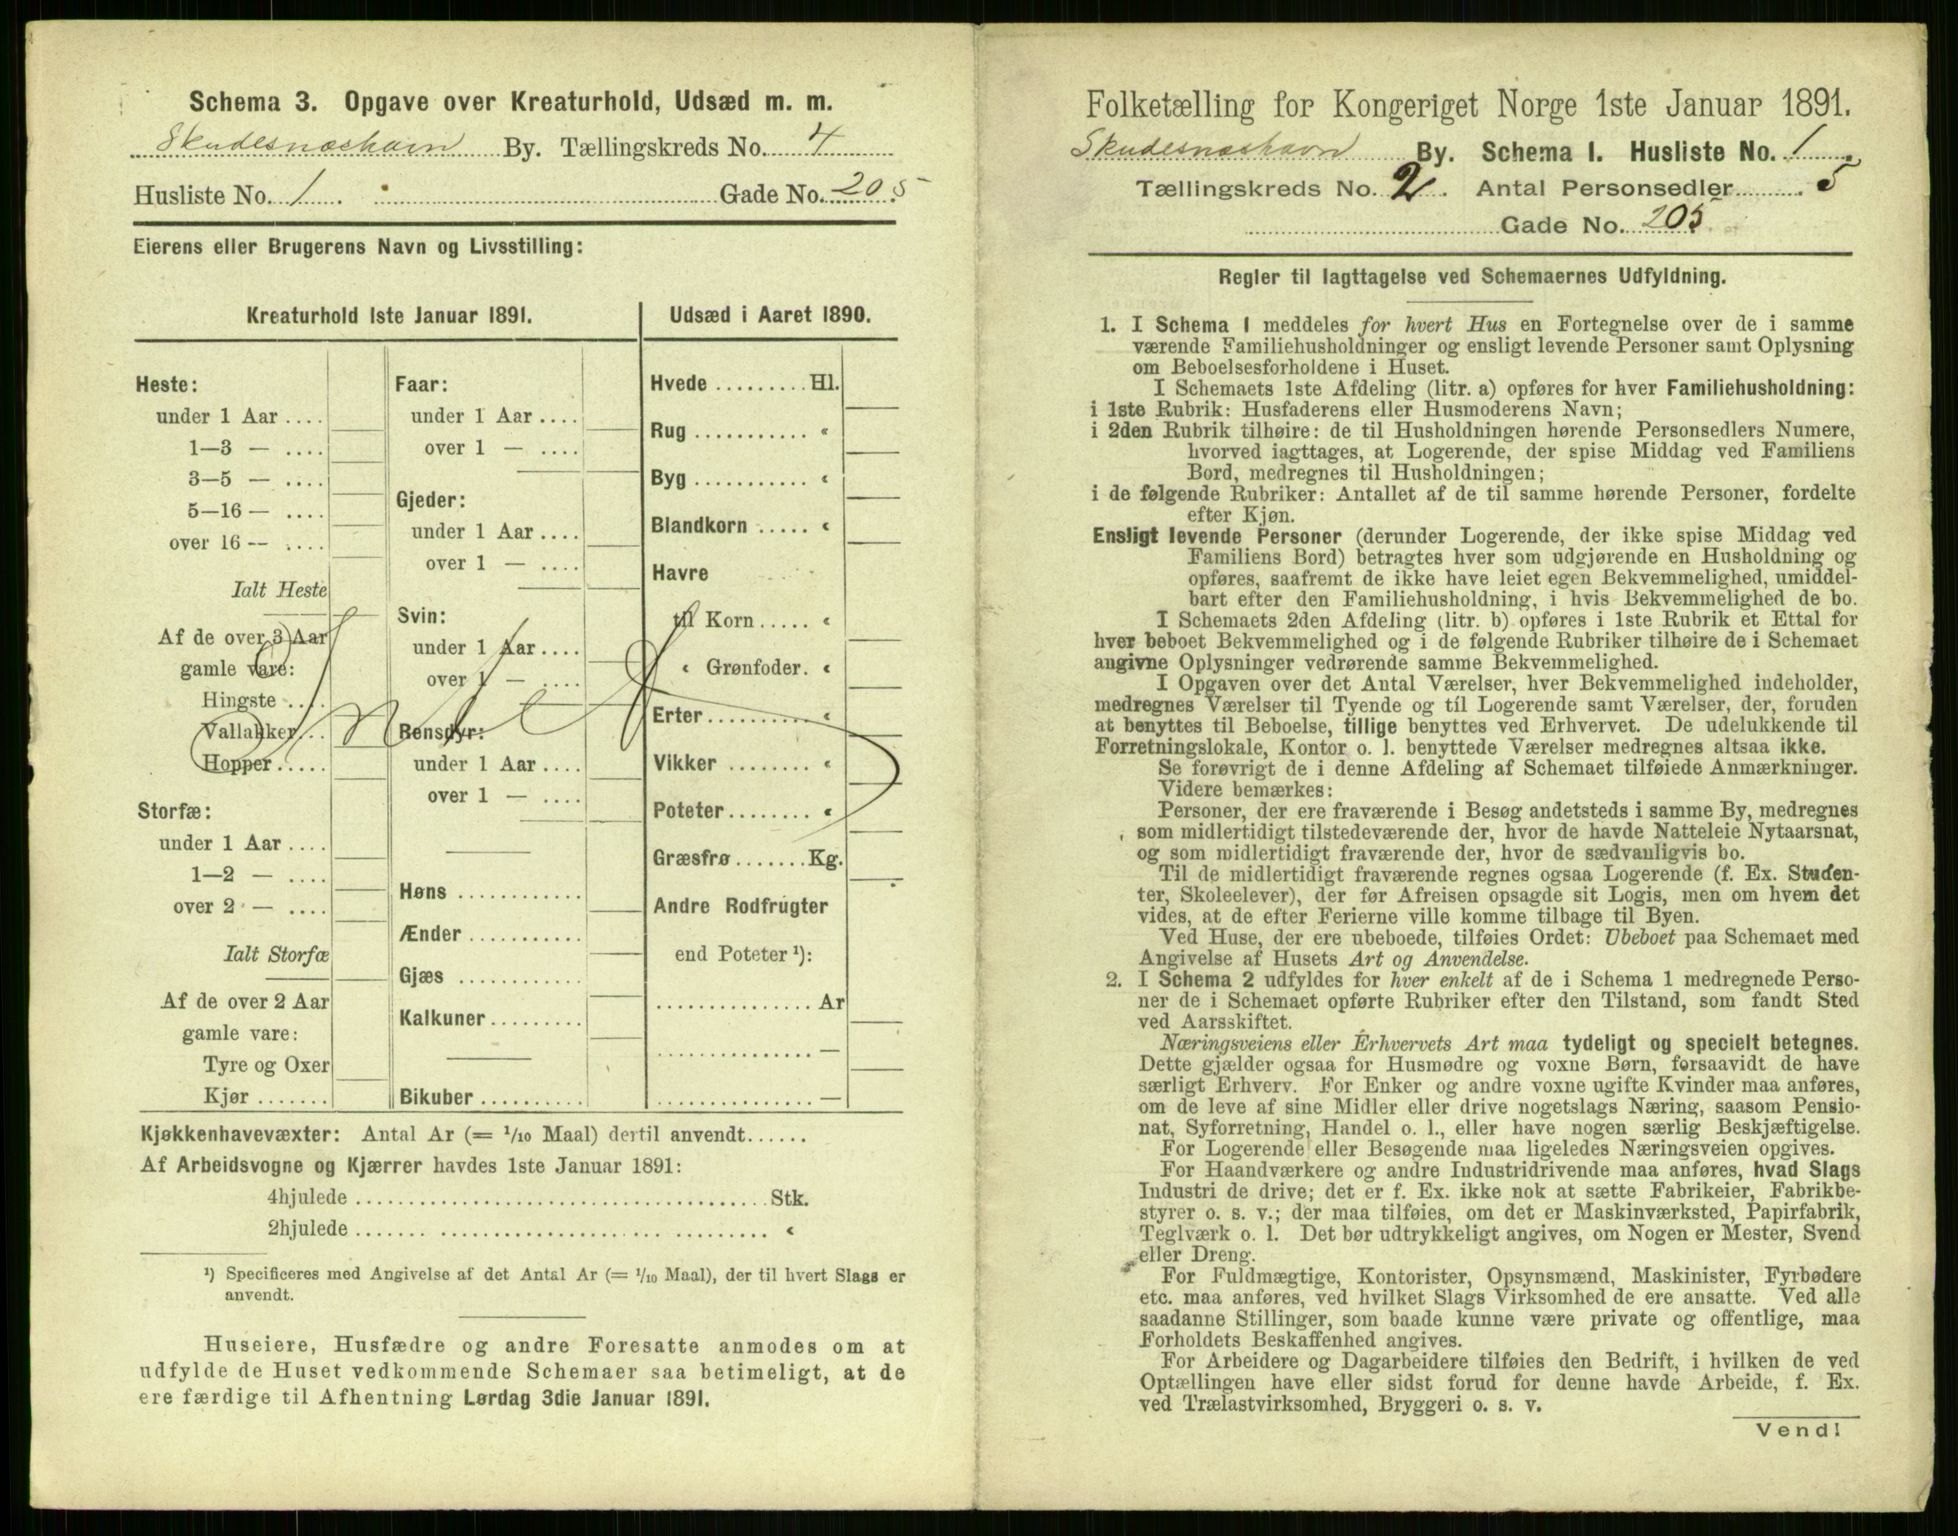 Schema 3. Opgave over Kreaturhold, Udsæd m. m.
Skudesnæshavn By. Tællingskreds No. 4
Husliste No. 1. Gade No. 205
Eierens eller Brugerens Navn og Livsstilling:
Kreaturhold 1ste Januar 1891.
Heste:
under 1 Aar....
1—3 — ....
3—5 — ....
5—16 — ....
over 16 — ....
Ialt Heste
Af de over 3 Aar
gamle vare:
Hingste ....
Vallakker...
Hopper.....
Storfæ:
under 1 Aar....
1—2 — ....
over 2 — ....
Ialt Storfæ
Af de over 2 Aar
gamle vare:
Tyre og Oxer
Kjør.......
Faar:
under 1 Aar....
over 1 — ....
Gjeder:
under 1 Aar....
over 1 — ....
Svin:
under 1 Aar....
over 1 — ....
Rensdyr:
under 1 Aar....
over 1 — ....
Høns............
Ænder...........
Gjæs ...........
Kalkuner.........
Bikuber..........
Udsæd i Aaret 1890.
Hvede.........Hl.
Rug ........... «
Byg ........... «
Blandkorn ..... «
Havre
til Korn..... «
« Grønfoder. «
Erter.......... «
Vikker ........ «
Poteter........ «
Græsfrø.......Kg.
Andre Rodfrugter
end Poteter ¹):
...............Ar
...............—
...............—
Kjøkkenhavevæxter: Antal Ar (= 1/10 Maal) dertil anvendt......
Af Arbeidsvogne og Kjærrer havdes 1ste Januar 1891:
4hjulede ........................................Stk.
2hjulede ........................................ «
¹) Specificeres med Angivelse af det Antal Ar (= 1/10 Maal), der til hvert Slags er
anvendt.
Huseiere, Husfædre og andre Foresatte anmodes om at
udfylde de Huset vedkommende Schemaer saa betimeligt, at de
ere færdige til Afhentning Lørdag 3die Januar 1891.
Folketælling for Kongeriget Norge 1ste Januar 1891.
Skudesnæshavn By. Schema I. Husliste No. 1.
Tællingskreds No. 2. Antal Personsedler 5
Gade No. 205
Regler til Iagttagelse ved Schemaernes Udfyldning.
1. I Schema 1 meddeles for hvert Hus en Fortegnelse over de i samme
værende Familiehusholdninger og ensligt levende Personer samt Oplysning
om Beboelsesforholdene i Huset.
I Schemaets 1ste Afdeling (litr. a) opføres for hver Familiehusholdning:
i 1ste Rubrik: Husfaderens eller Husmoderens Navn;
i 2den Rubrik tilhøire: de til Husholdningen hørende Personsedlers Numere,
hvorved iagttages, at Logerende, der spise Middag ved Familiens
Bord, medregnes til Husholdningen;
i de følgende Rubriker: Antallet af de til samme hørende Personer, fordelte
efter Kjøn.
Ensligt levende Personer (derunder Logerende, der ikke spise Middag ved
Familiens Bord) betragtes hver som udgjørende en Husholdning og
opføres, saafremt de ikke have leiet egen Bekvemmelighed, umiddel-
bart efter den Familiehusholdning, i hvis Bekvemmelighed de bo.
I Schemaets 2den Afdeling (litr. b) opføres i 1ste Rubrik et Ettal for
hver beboet Bekvemmelighed og i de følgende Rubriker tilhøire de i Schemaet
angivne Oplysninger vedrørende samme Bekvemmelighed.
I Opgaven over det Antal Værelser, hver Bekvemmelighed indeholder,
medregnes Værelser til Tyende og til Logerende samt Værelser, der, foruden
at benyttes til Beboelse, tillige benyttes ved Erhvervet. De udelukkende til
Forretningslokale, Kontor o. l. benyttede Værelser medregnes altsaa ikke.
Se forøvrigt de i denne Afdeling af Schemaet tilføiede Anmærkninger.
Videre bemærkes:
Personer, der ere fraværende i Besøg andetsteds i samme By, medregnes
som midlertidigt tilstedeværende der, hvor de havde Natteleie Nytaarsnat,
og som midlertidigt fraværende der, hvor de sædvanligvis bo.
Til de midlertidigt fraværende regnes ogsaa Logerende (f. Ex. Studen-
ter, Skoleelever), der før Afreisen opsagde sit Logis, men om hvem det
vides, at de efter Ferierne ville komme tilbage til Byen.
Ved Huse, der ere ubeboede, tilføies Ordet: Ubeboet paa Schemaet med
Angivelse af Husets Art og Anvendelse.
2. I Schema 2 udfyldes for hver enkelt af de i Schema 1 medregnede Perso-
ner de i Schemaet opførte Rubriker efter den Tilstand, som fandt Sted
ved Aarsskiftet.
Næringsveiens eller Erhvervets Art maa tydeligt og specielt betegnes.
Dette gjælder ogsaa for Husmødre og voxne Børn, forsaavidt de have
særligt Erhverv. For Enker og andre voxne ugifte Kvinder maa anføres,
om de leve af sine Midler eller drive nogetslags Næring, saasom Pensio-
nat, Syforretning, Handel o. l., eller have nogen særlig Beskjæftigelse.
For Logerende eller Besøgende maa ligeledes Næringsveien opgives.
For Haandværkere og andre Industridrivende maa anføres, hvad Slags
Industri de drive; det er f. Ex. ikke nok at sætte Fabrikeier, Fabrikbe-
styrer o. s. v.; der maa tilføies, om det er Maskinværksted, Papirfabrik,
Teglværk o. l. Det bør udtrykkeligt angives, om Nogen er Mester, Svend
eller Dreng.
For Fuldmægtige, Kontorister, Opsynsmænd, Maskinister, Fyrbødere
etc. maa anføres, ved hvilket Slags Virksomhed de ere ansatte. Ved alle
saadanne Stillinger, som baade kunne være private og offentlige, maa
Forholdets Beskaffenhed angives.
For Arbeidere og Dagarbeidere tilføies den Bedrift, i hvilken de ved
Optællingen have eller sidst forud for denne havde Arbeide, f. Ex.
ved Trælastvirksomhed, Bryggeri o. s. v.
Vend!